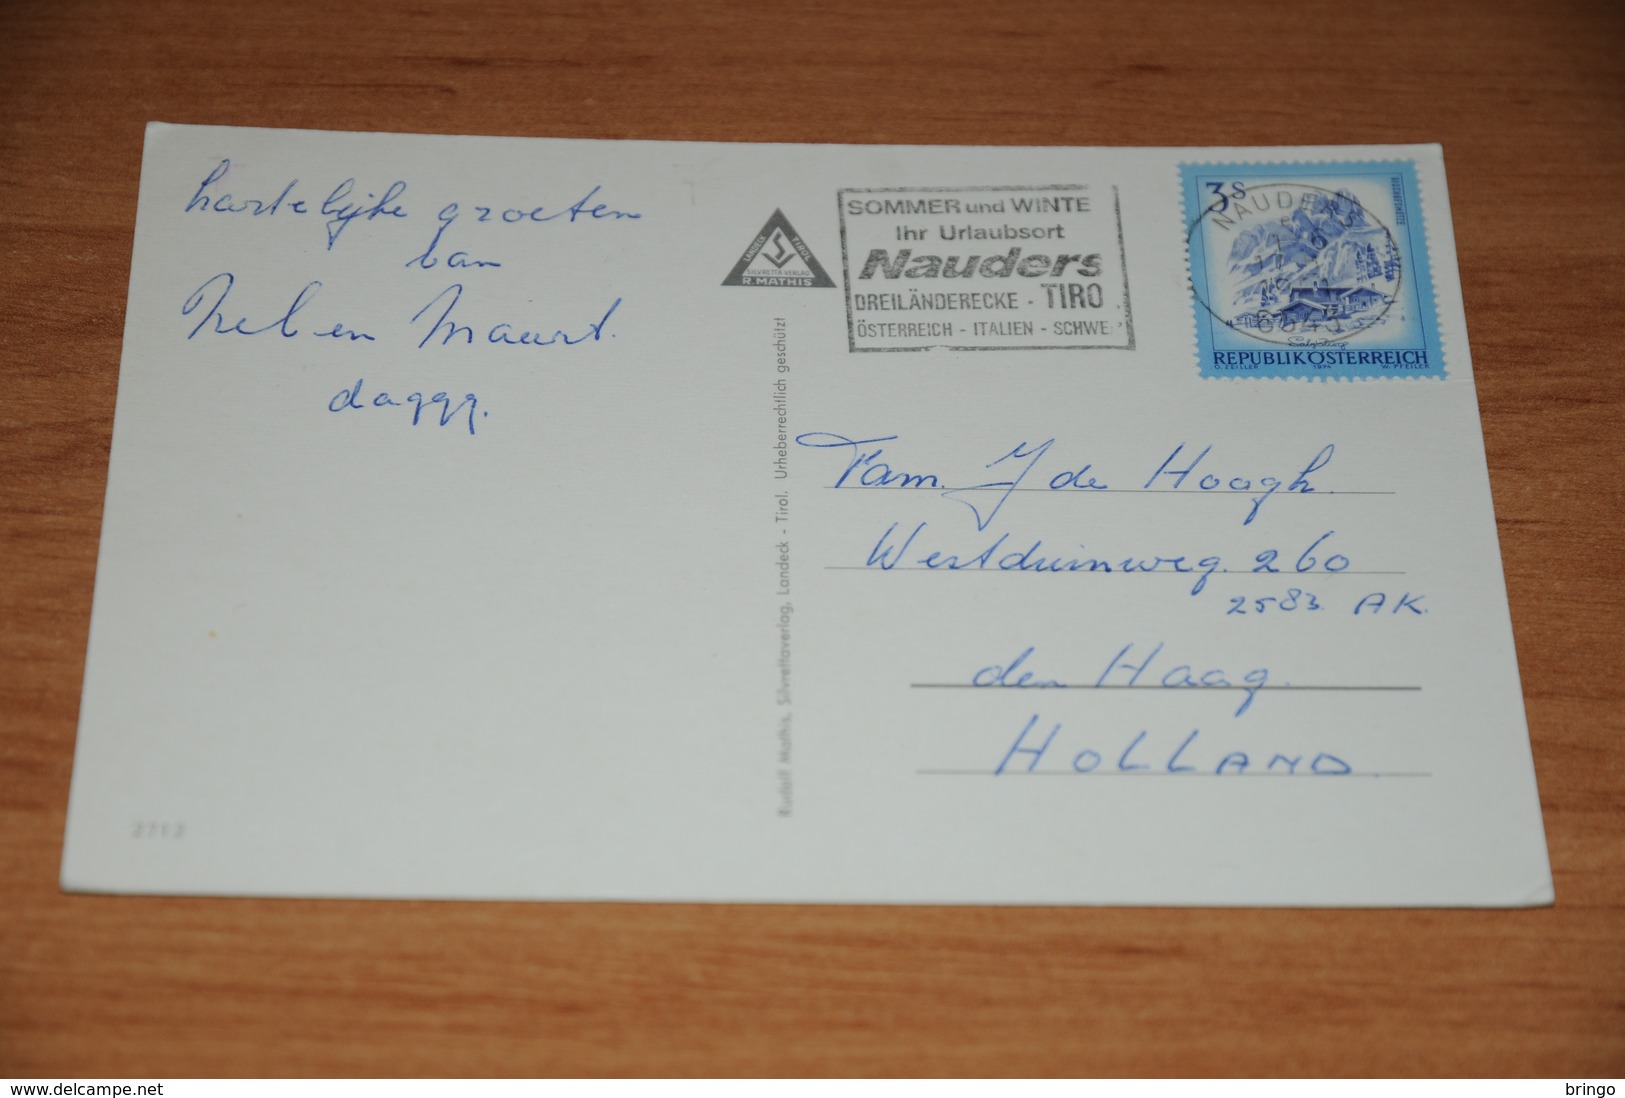 hartelijke groeten
van
Nel en Maart.
daggg.
LANDECK TIROL
SILVRETTA VERLAG
R. MATHIS
SOMMER und WINTE
Ihr Urlaubsort
Nauders
DREILÄNDERECKE - TIRO
ÖSTERREICH - ITALIEN - SCHWE
3 S
NAUDERS
6543
REPUBLIK ÖSTERREICH
O. ZEILLER 1974 W. PFEILER
Rudolf Mathis, Silvrettaverlag, Landeck - Tirol. Urheberrechtlich geschützt
Fam. J de Hoogh.
Westduinweg. 260
2583 AK.
den Haag.
HOLLAND.
2712
delcampe.net
bringo